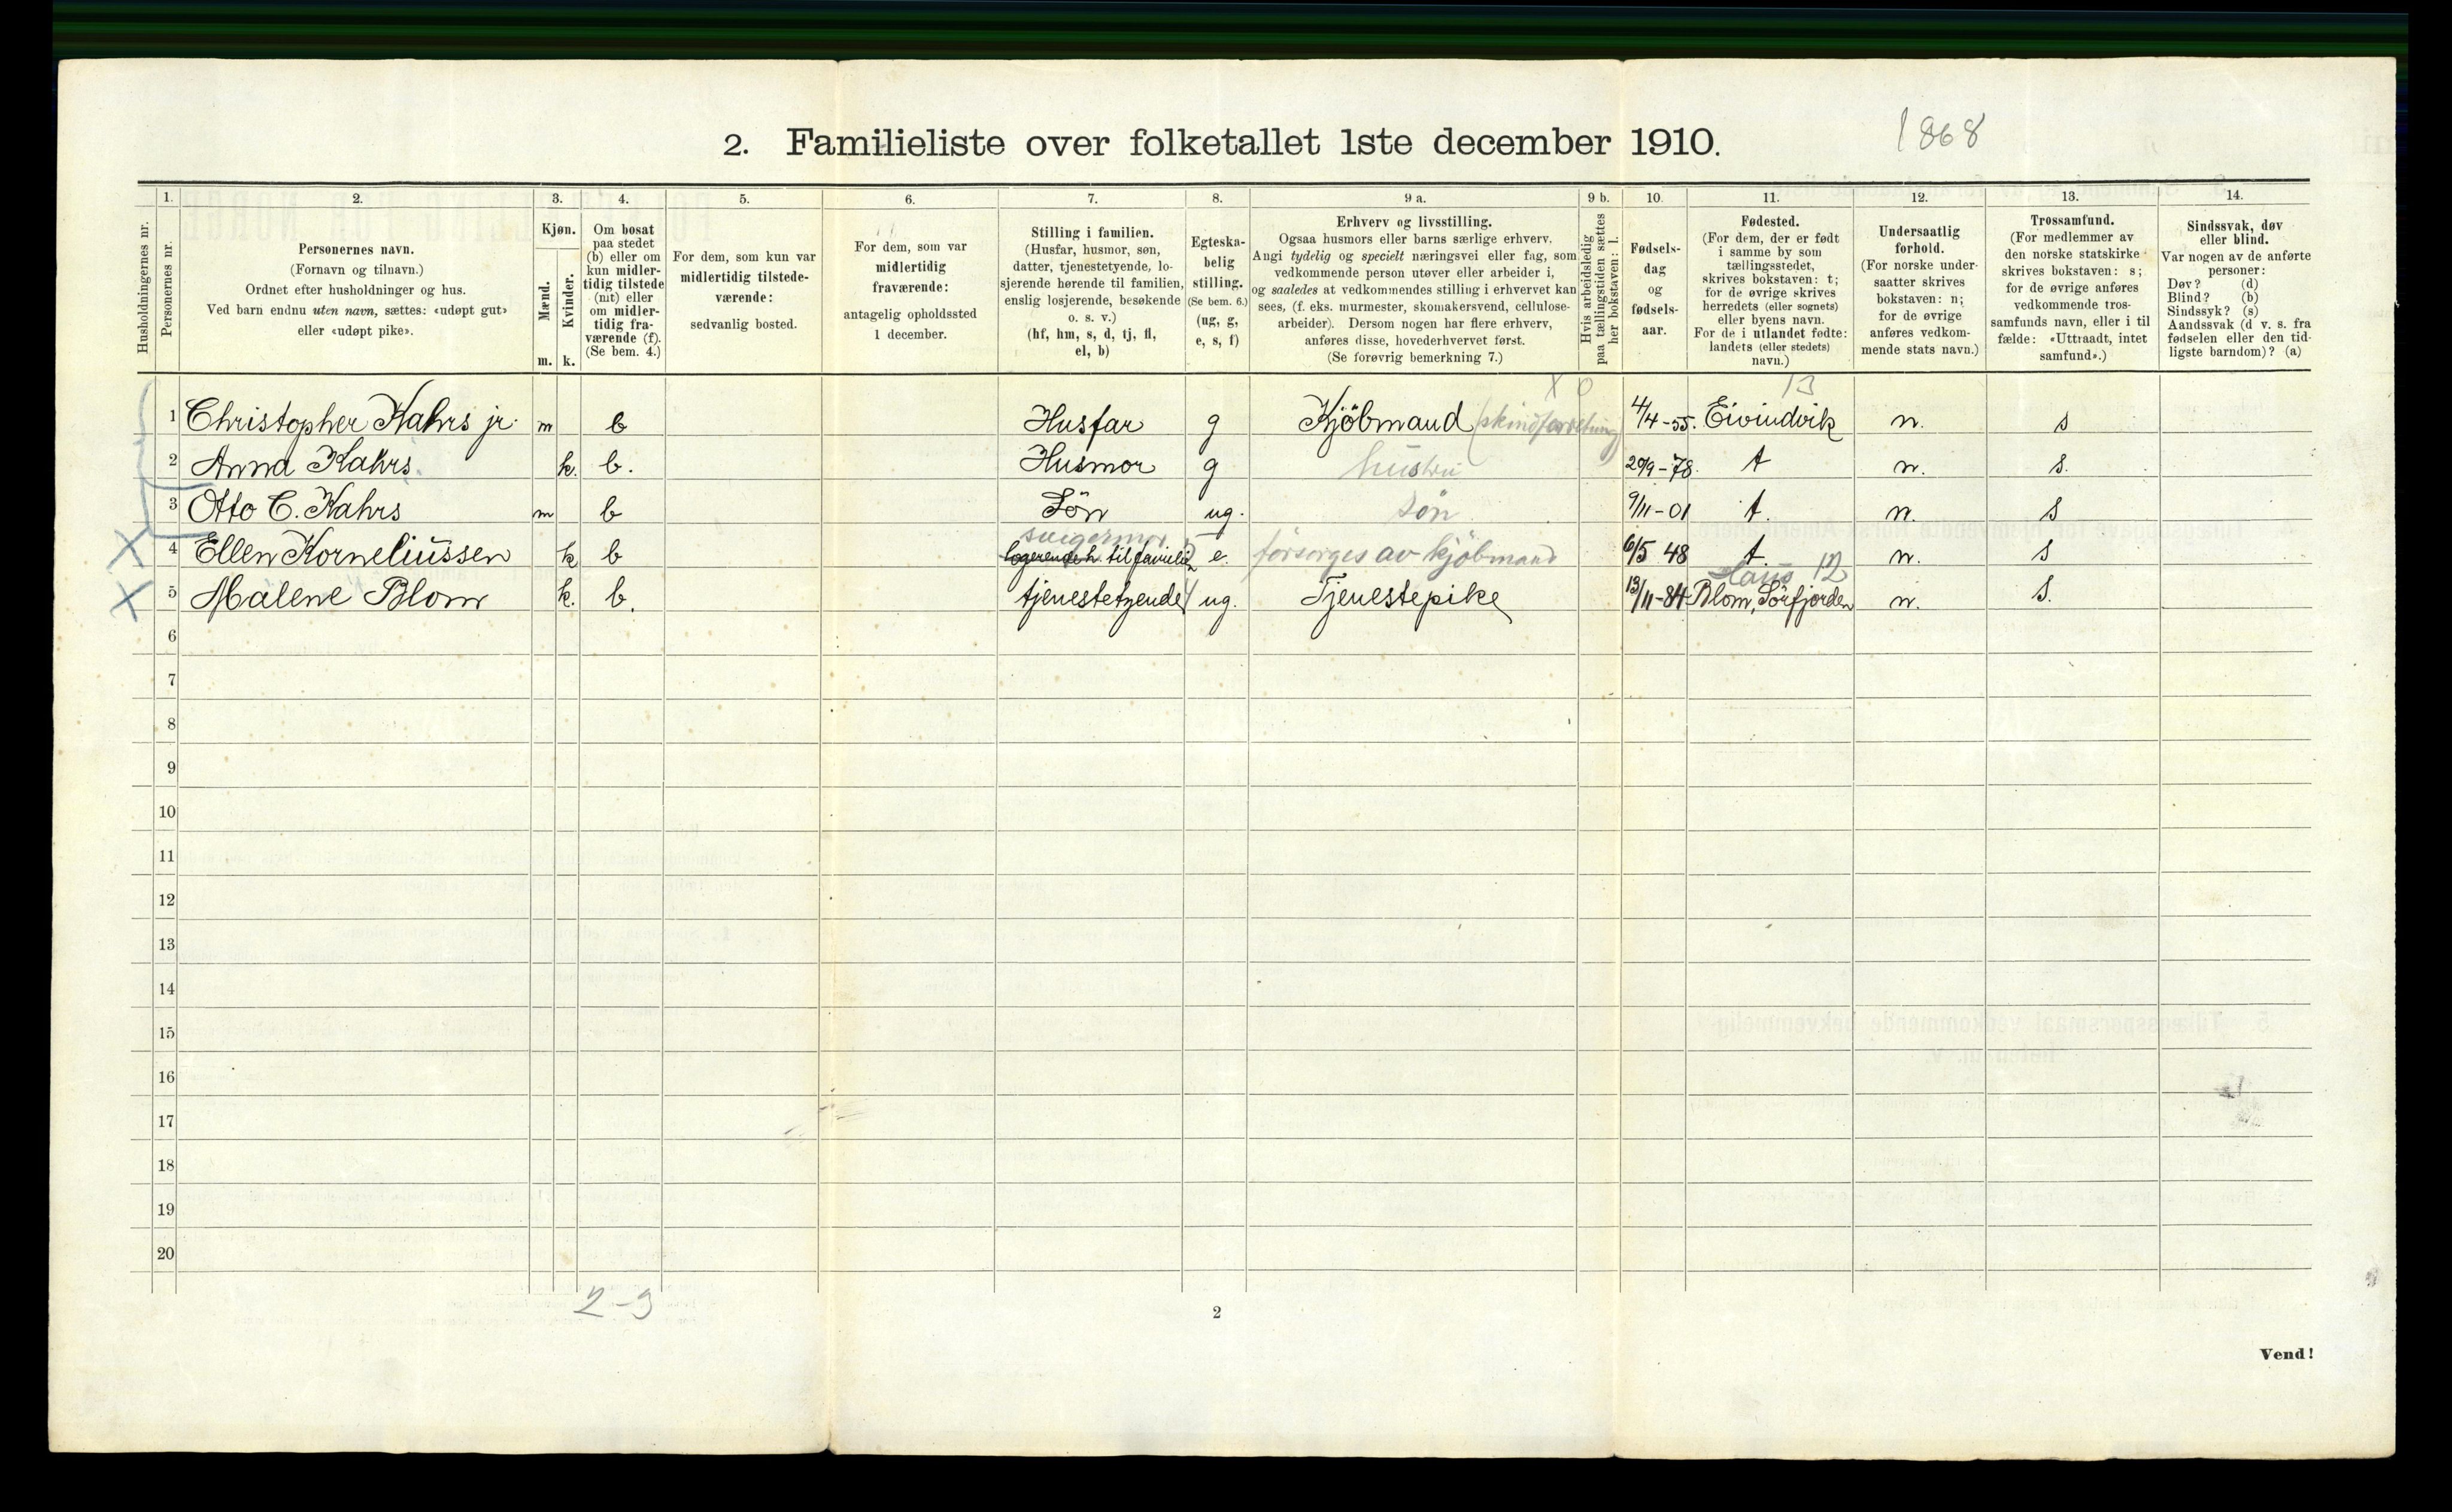 1868
2. Familieliste over folketallet 1ste december 1910.
Husholdningernes nr.
1.
Personernes nr.
2.
Personernes navn.
(Fornavn og tilnavn.)
Ordnet efter husholdninger og hus.
Ved barn endnu uten navn, sættes: «udøpt gut»
eller «udøpt pike».
3.
Kjøn.
Mænd.
m.
Kvinder.
k.
4.
Om bosat
paa stedet
(b) eller om
kun midler-
tidig tilstede
(mt) eller
om midler-
tidig fra-
værende (f).
(Se bem. 4.)
5.
For dem, som kun var
midlertidig tilstede-
værende:
sedvanlig bosted.
6.
For dem, som var
midlertidig
fraværende:
antagelig opholdssted
1 december.
7.
Stilling i familien.
(Husfar, husmor, søn,
datter, tjenestetyende, lo-
sjerende hørende til familien,
enslig losjerende, besøkende
o. s. v.)
(hf, hm, s, d, tj, fl,
el, b)
8.
Egteska-
belig
stilling.
(Se bem. 6.)
(ug, g,
e, s, f)
9 a.
Erhverv og livsstilling.
Ogsaa husmors eller barns særlige erhverv.
Angi tydelig og specielt næringsvei eller fag, som
vedkommende person utøver eller arbeider i,
og saaledes at vedkommendes stilling i erhvervet kan
sees, (f. eks. murmester, skomakersvend, cellulose-
arbeider). Dersom nogen har flere erhverv,
anføres disse, hovederhvervet først.
(Se forøvrig bemerkning 7.)
9 b.
Hvis arbeidsledig
paa tællingstiden sættes
her bokstaven: l.
10.
Fødsels-
dag
og
fødsels-
aar.
11.
Fødested.
(For dem, der er født
i samme by som
tællingsstedet,
skrives bokstaven: t;
for de øvrige skrives
herredets (eller sognets)
eller byens navn.
For de i utlandet fødte:
landets (eller stedets)
navn.)
12.
Undersaatlig
forhold.
(For norske under-
saatter skrives
bokstaven: n;
for de øvrige
anføres vedkom-
mende stats navn.)
13.
Trossamfund.
(For medlemmer av
den norske statskirke
skrives bokstaven: s;
for de øvrige anføres
vedkommende tros-
samfunds navn, eller i til
fælde: «Uttraadt, intet
samfund».)
14.
Sindssvak, døv
eller blind.
Var nogen av de anførte
personer:
Døv? (d)
Blind? (b)
Sindssyk? (s)
Aandssvak (d v. s. fra
fødselen eller den tid-
ligste barndom)? (a)
X 0 13
1 Christopher Kahrs jr. m b Husfar g Kjöbmand (skindforretning) 4/4-55. Eivindvik n. s
2 Anna Kahrs k. b. Husmor g hustru 20/9-78. t n. s.
3 Otto C. Kahrs m b Sön ug. sön 9/11-01 t. n. s
svigermor
X 4 Ellen Korneliussen k b logerende h. til familien e. forsørges av kjöbmand 6/5 48 t. n. s
Haus 12
X 5 Malene Blom k. b. tjenestetyende ug. Tjenestepike 13/11-84 Blom, Sörfjorden n. s.
6
7
8
9
10
11
12
13
14
15
16
17
18
19
20
2-3
2
Vend!